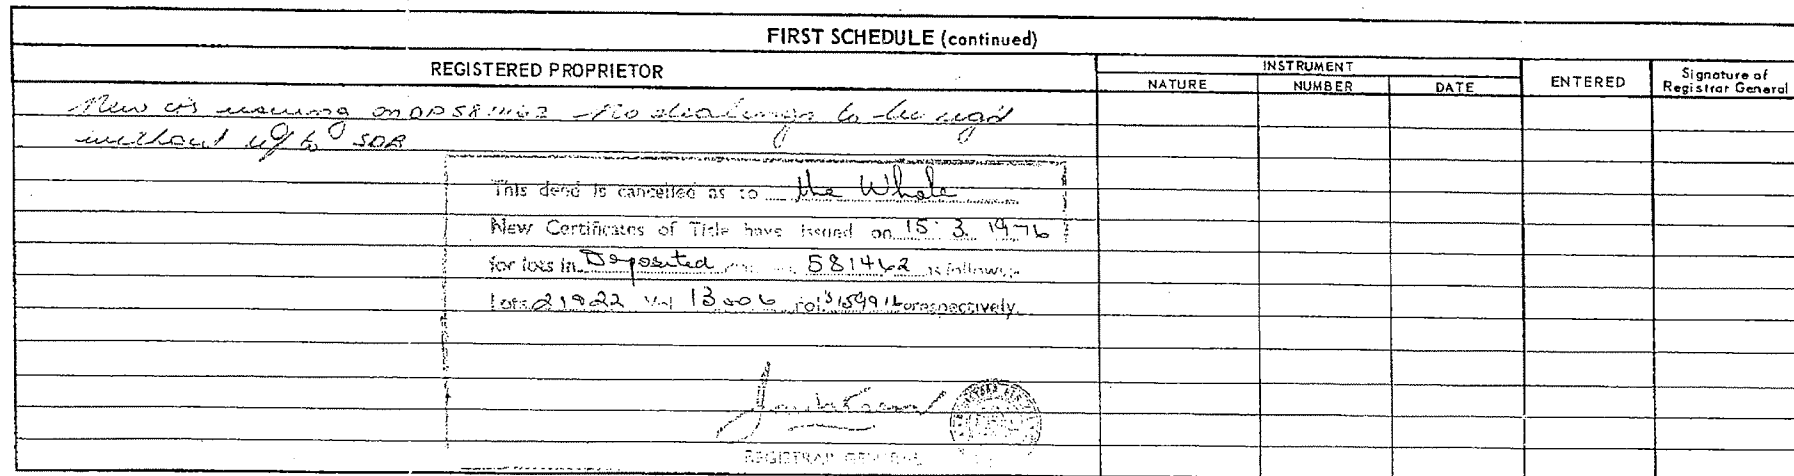 FIRST SCHEDULE (continued)
REGISTERED PROPRIETOR
INSTRUMENT
NATURE
NUMBER
DATE
ENTERED
Signature of
Registrar General
New issuing on DP581462 No dealings to be regd
without to SDR
This deed is cancelled as to the Whole
New Certificates of Title have issued on 15. 3. 1976
for lots in Deposited 581462 as follows:-
Lots 21 & 22 Vol 13006 respectively.
REGISTRAR GENERAL